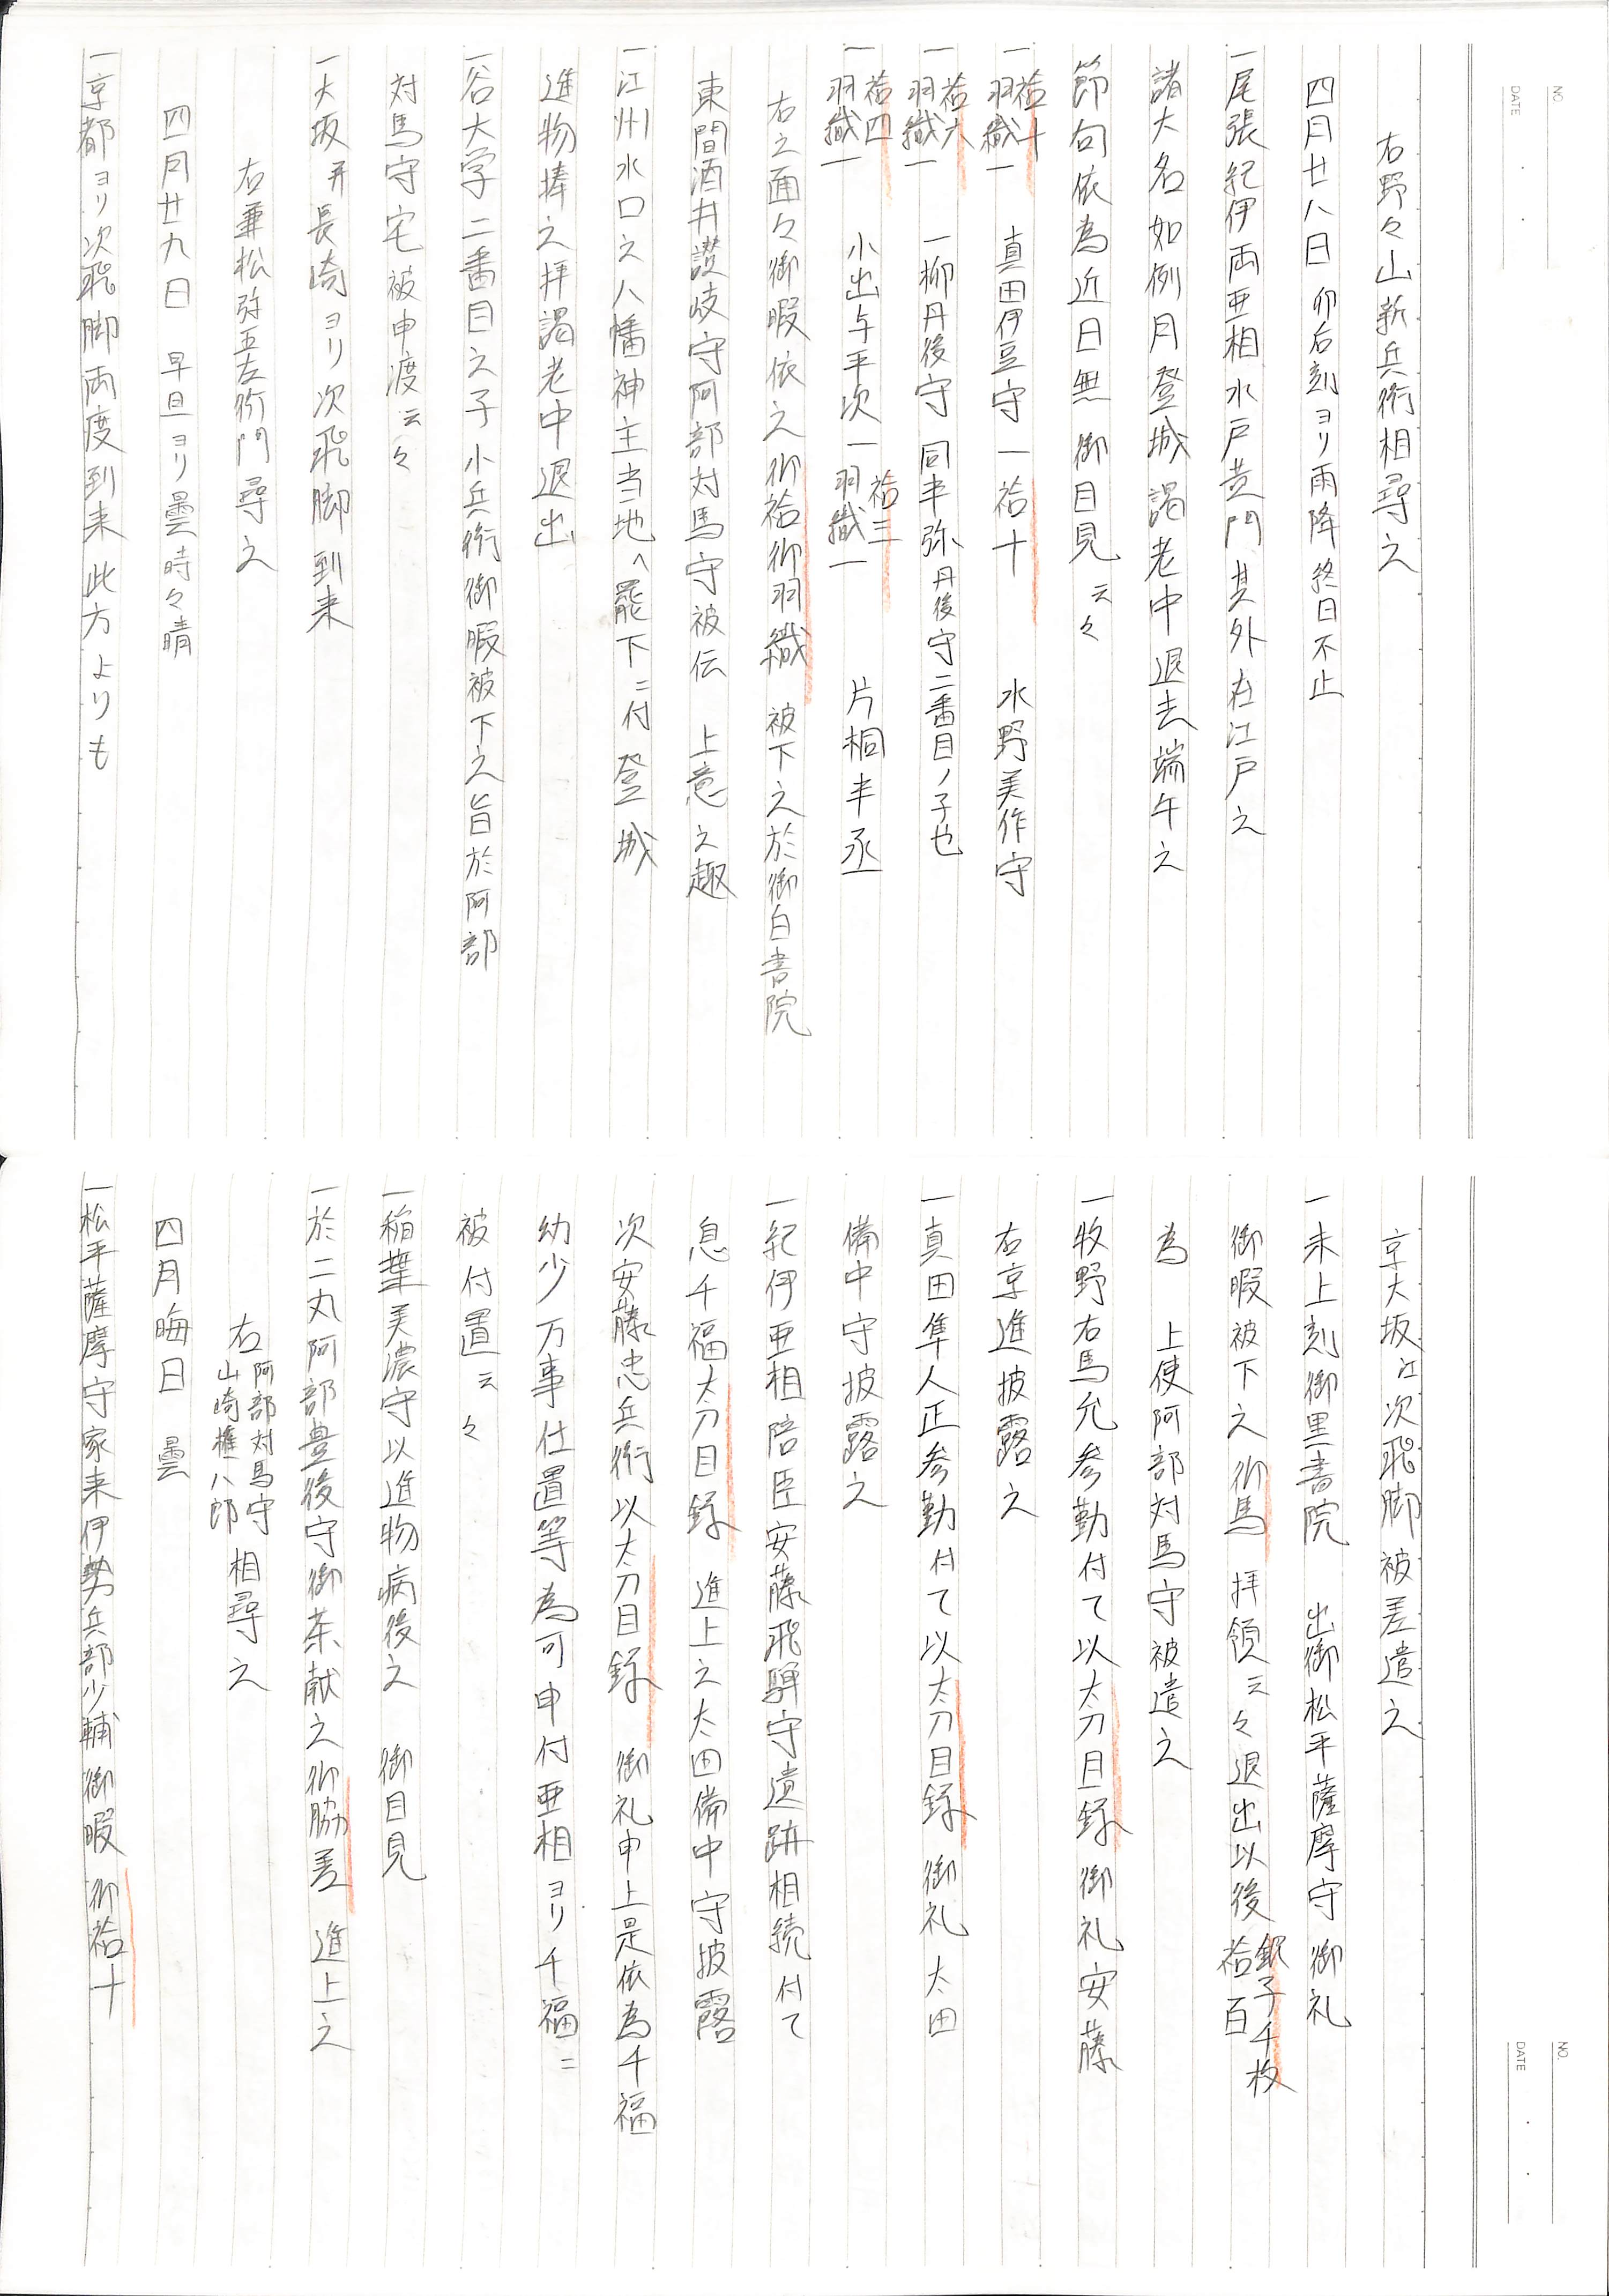 右野々山新兵衛相尋之
四月廿八日 卯右刻ヨリ雨降終日不止
一尾張紀伊両亜相水戸黄門其外在江戸之
諸大名如例月登城謁老中退去端午之
節句依為近日無 御目見云々
一袷十羽織一 真田伊豆守 一袷十 水野美作守
一袷六羽織一 一柳丹後守 同半弥丹後守二番目ノ子也
一袷四羽織一 小出与平次 一袷三羽織一 片桐半丞
右之面々御暇依之御袷御羽織 被下之於御白書院
東間酒井讃岐守阿部対馬守被伝 上意之趣
一江州水口之八幡神主当地へ罷下ニ付登城
進物捧之拝謁老中退出
一谷大学二番目之子小兵衛御暇被下之旨於阿部
対馬守宅被申渡云々
一大坂并長崎ヨリ次飛脚到来
右兼松弥五左衛門尋之
四月廿九日 早旦ヨリ曇時々晴
一京都ヨリ次飛脚両度到来此方よりも
京大坂江次飛脚被差遣之
一未上刻御黒書院 出御松平薩摩守御礼
御暇被下之御馬拝領云々退出以後銀子千枚袷百
為 上使阿部対馬守被遣之
一牧野右馬允参勤付て以太刀目録御礼安藤
右京進披露之
一真田隼人正参勤付て以太刀目録御礼太田
備中守披露之
一紀伊亜相陪臣安藤飛騨守遺跡相続付て
息千福太刀目録 進上之太田備中守披露
次安藤忠兵衛以太刀目録 御礼申上是依為千福
幼少万事仕置等為可申付亜相ヨリ千福ニ
被付置云々
一稲葉美濃守以進物病後之 御目見
一於二丸阿部豊後守御茶献之御脇差 進上之
右阿部対馬守山崎権八郎相尋之
四月晦日 曇
一松平薩摩守家来伊勢兵部少輔御暇御袷十
NO.
DATE
NO.
DATE